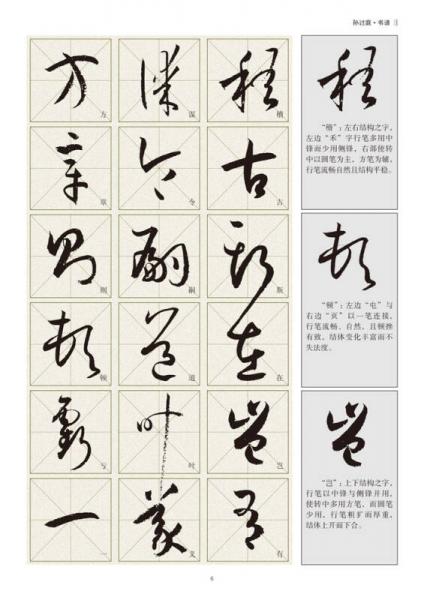 孙过庭·书谱
稽
古
斯
在
岂
有
谋
令
嗣
道
叶
义
方
章
则
顿
亏
一
“稽”：左右结构之字，
左边“禾”字行笔多用中
锋而少用侧锋，右部使转
中以圆笔为主，方笔为辅，
行笔流畅自然且结构平稳。
“顿”：左边“屯”与
右边“页”以一笔连接，
行笔流畅、自然，且顿挫
有致，结体变化丰富而不
失法度。
“岂”：上下结构之字，
行笔以中锋与侧锋并用，
使转中多用方笔，而圆笔
少用，行笔粗犷而厚重，
结体上开而下合。
6